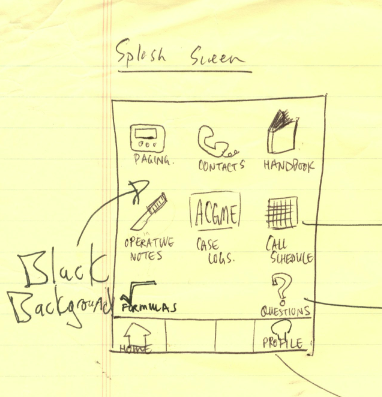 Splash Screen
PAGING.
CONTACTS
HANDBOOK
OPERATIVE
NOTES
ACGME
CASE
LOGS.
CALL
SCHEDULE
Black
Background
FORMULAS
QUESTIONS
HOME
PROFILE